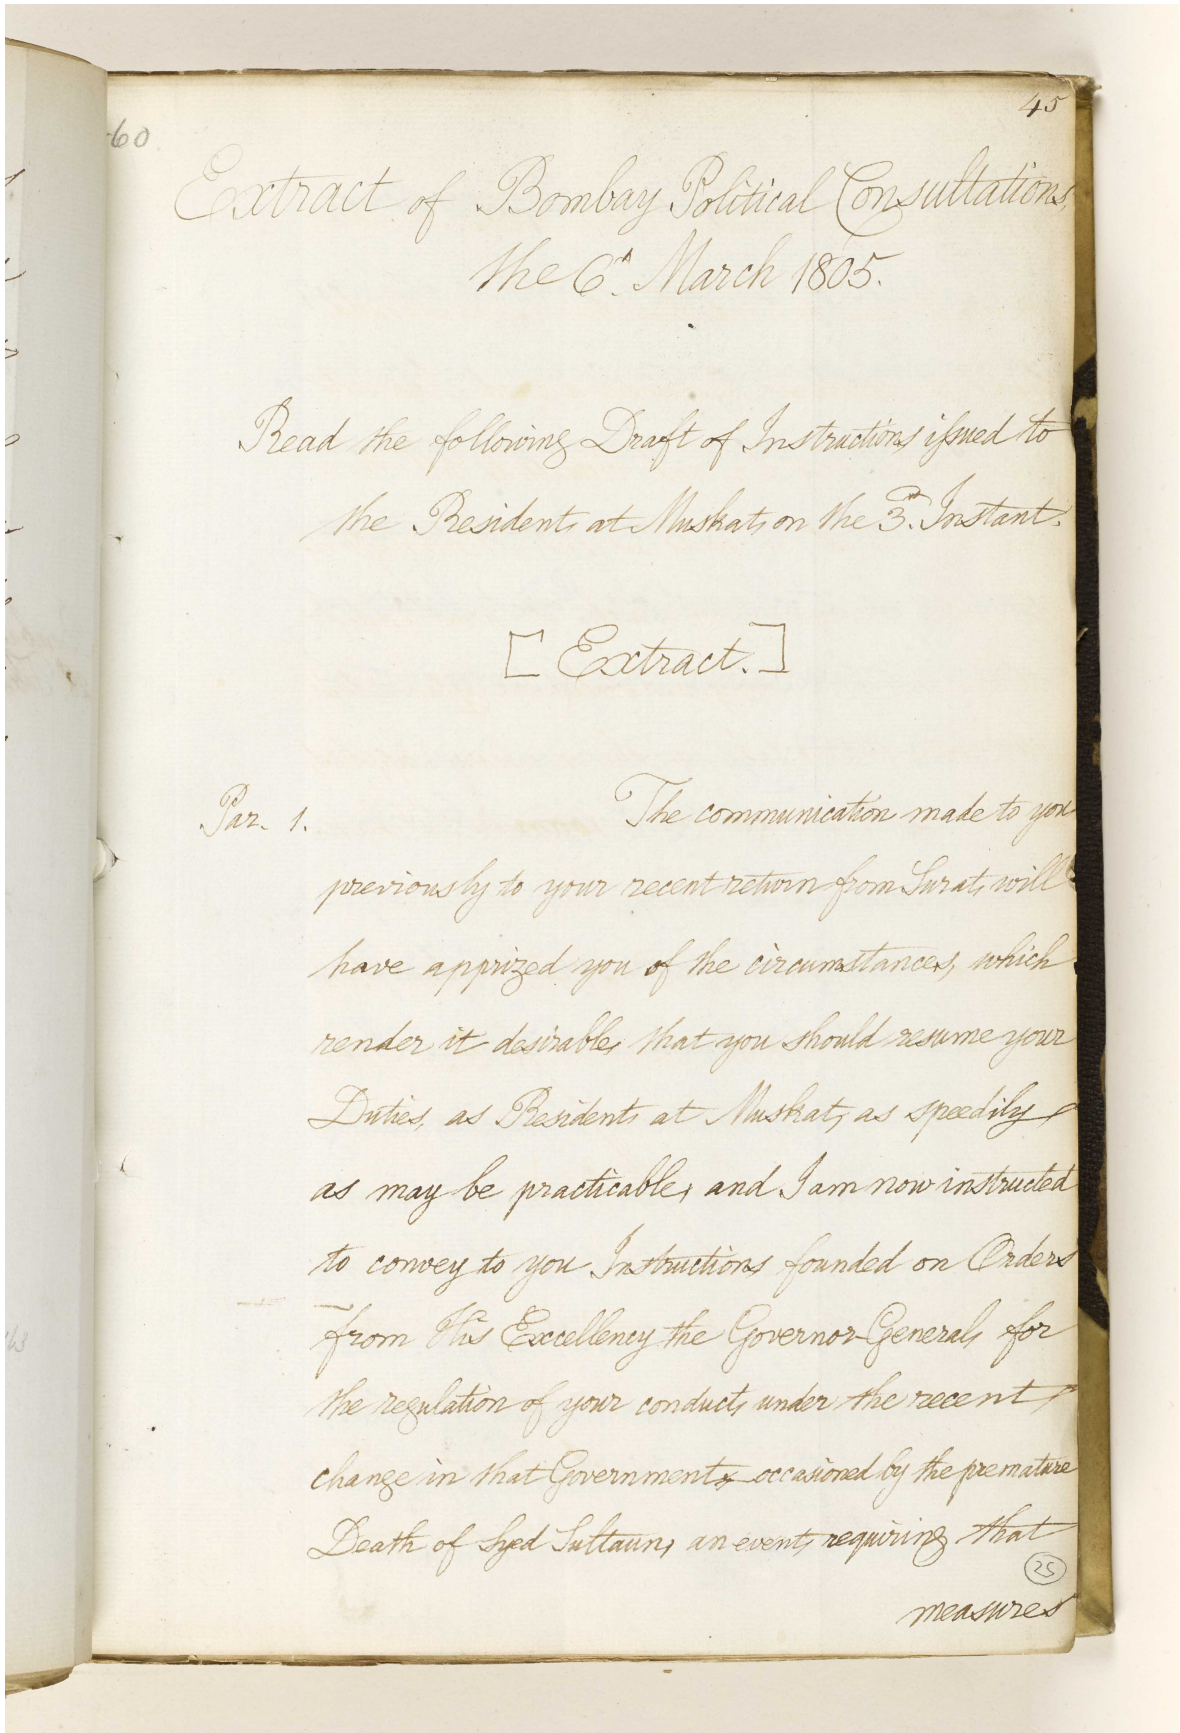 45
60
Extract of Bombay Political Consultations,
the 6th. March 1805.
Read the following Draft of Instructions issued to
the Resident, at Muskat, on the 3rd. Instant.
[Extract.]
Par. 1. The communication made to you
previously to your recent return from Surat, will
have apprized you of the circumstances, which
render it desirable, that you should resume your
Duties, as Resident, at Muskat, as speedily
as may be practicable, and I am now instructed
to convey to you Instructions founded on Orders
from His Excellency the Governor-General, for
the regulation of your conduct, under the recent
change in that Government, occasioned by the premature
Death of Syed Sultaun, an event, requiring that
25
measures